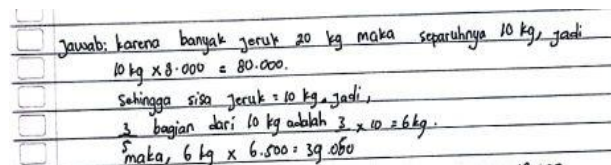 Jawab: karena banyak jeruk 20 kg maka separuhnya 10 kg, jadi
10 kg × 8.000 = 80.000.
Sehingga sisa jeruk = 10 kg. Jadi,
3/5 bagian dari 10 kg adalah 3/5 × 10 = 6 kg.
maka, 6 kg × 6.500 = 39.000